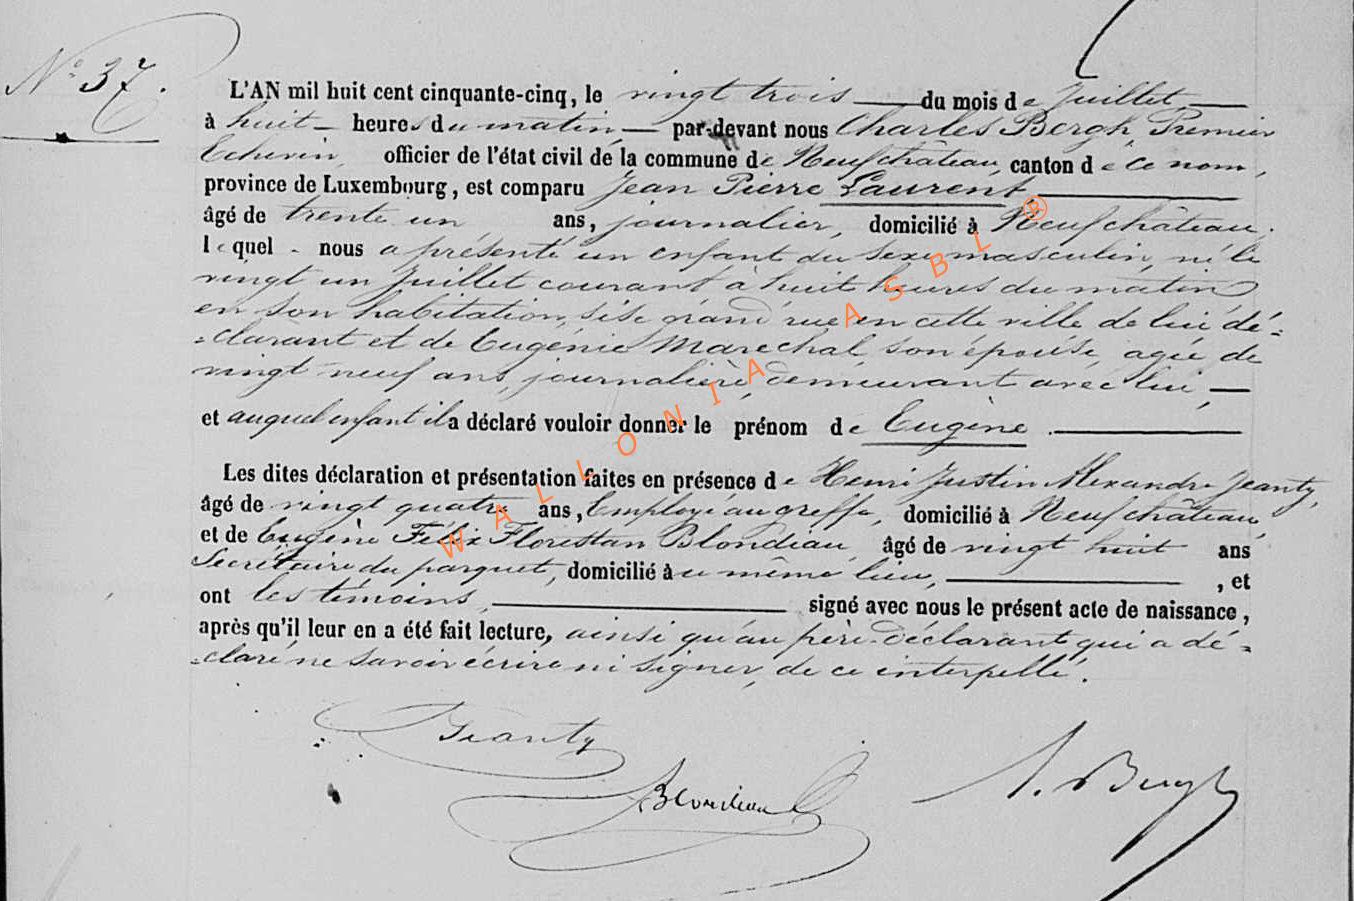 N° 37.
L'AN mil huit cent cinquante-cinq, le vingt trois du mois de Juillet,
à huit heures du matin, par-devant nous Charles Bergh Premier
Echevin, officier de l'état civil de la commune de Neufchâteau, canton de ce nom,
province de Luxembourg, est comparu Jean Pierre Laurent,
âgé de trente un ans, journalier, domicilié à Neufchâteau.
lequel nous a présenté un enfant du sexe masculin, né le
vingt un Juillet courant à huit heures du matin
en son habitation, sise grand rue en cette ville de lui dé=
=clarant et de Eugénie Maréchal son épouse, agée de
vingt neuf ans, journalière, demeurant avec lui,
et auquel enfant il a déclaré vouloir donner le prénom de Eugène.
Les dites déclaration et présentation faites en présence de Henri Justin Alexandre Jeanty,
âgé de vingt quatre ans, Employé au greffe, domicilié à Neufchâteau,
et de Eugène Félix Florestan Blondiau, âgé de vingt huit ans
Secrétaire du parquet, domicilié à u même lieu, , et
ont les témoins, signé avec nous le présent acte de naissance,
après qu'il leur en a été fait lecture, ainsi qu'au père déclarant qui a dé=
=claré ne savoir écrire ni signer, de ce interpellé.
Jeanty
Blondiau
Bergh
WALLONIA ASBL ®